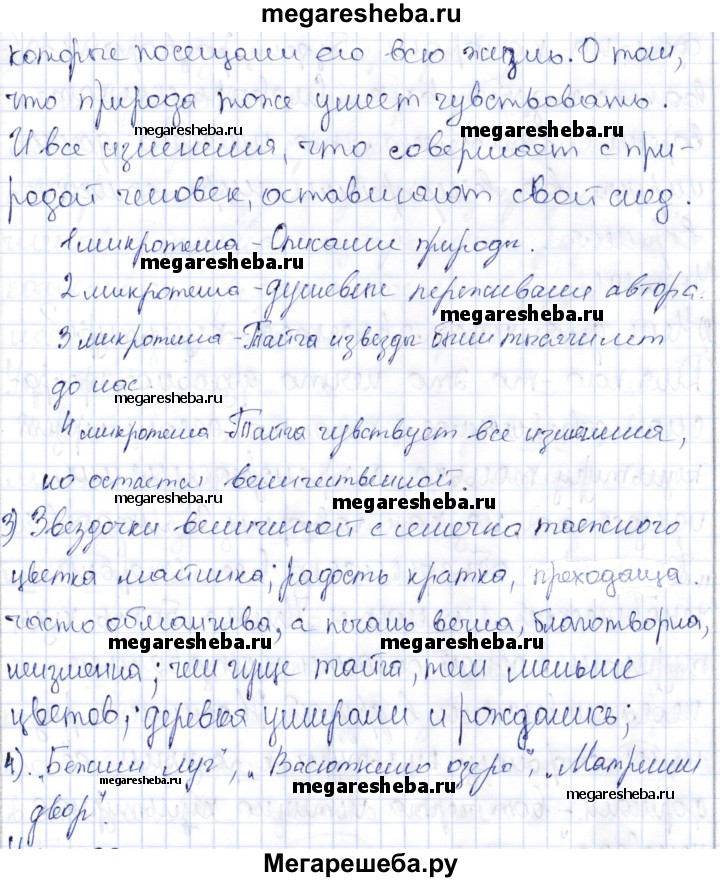 megaresheba.ru
которые посещали его всю жизнь. О том,
что природа тоже умеет чувствовать.
megaresheba.ru megaresheba.ru
И все изменения, что совершает с при-
родой человек, оставляют свой след.
1 микротема - Описание природы.
megaresheba.ru
2 микротема - душевные переживания автора.
megaresheba.ru
3 микротема - Тайга и звезды были тысячи лет
до нас
megaresheba.ru
4 микротема - Тайга чувствует все изменения,
но остается величественной.
megaresheba.ru megaresheba.ru
3) Звездочки величиной с семечко таежного
цветка майника; радость кратка, преходяща
часто обманчива, а печаль вечна, благотворна,
megaresheba.ru megaresheba.ru
неизменна; чем гуще тайга, тем меньше
цветов; деревья умирали и рождались;
4). „Бежин луг", „Васюткино озеро", „Матренин
megaresheba.ru megaresheba.ru megaresheba.ru
двор".
Мегарешеба.ру